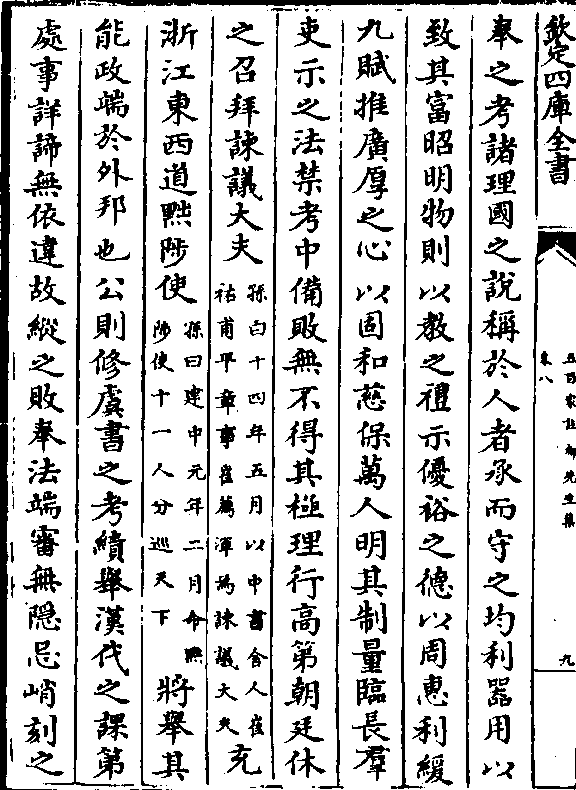 欽定四庫全書
五百家註柳先生集
卷八
九
奉之考諸理國之說稱於人者承而守之均利器用以
致其富昭明物則以教之禮示優裕之德以周惠利緩
九賦推廣厚之心以固和慈保萬人明其制量臨長羣
吏示之法禁考中備敗無不得其極理行高第朝廷休
之召拜諫議大夫孫曰十四年五月以中書舍人崔祐甫平章事崔薦渾為諫議大夫充
浙江東西道黜陟使孫曰建中元年二月命黜陟使十一人分巡天下將舉其
能政端於外邦也公則修虞書之考績舉漢代之課第
處事詳諦無依違故縱之敗奉法端審無隱忌峭刻之